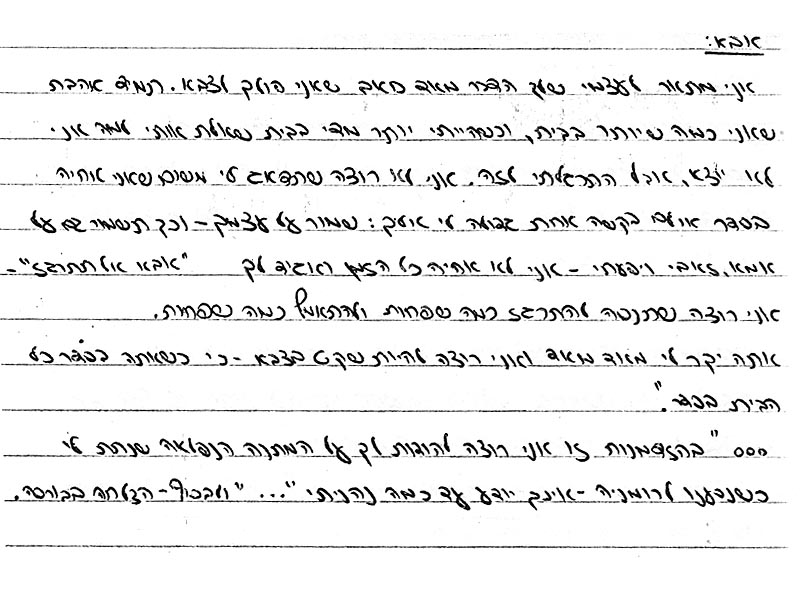 אבא:
אני מתאר לעצמי שלך הדבר מאוד כואב שאני הולך לצבא. תמיד אהבת
שאני כמה שיותר בבית, וכשהייתי יותר מדי בבית שאלת אותי למה אני
לא יוצא, אבל התרגלתי לזה. אני לא רוצה שתדאג לי משום שאני אהיה
בסדר אולם בקשה אחת גדולה לי אליך: שמור על עצמך - וכך תשמור גם על
אמא, זאבי ויפעתי - אני לא אהיה כל הזמן ואגיד לך "אבא אל תתרגז" -
אני רוצה שתנסה להתרגז כמה שפחות ולהתאמץ כמה שפחות.
אתה יקר לי מאוד מאוד ואני רוצה להיות שקט בצבא - כי כשאתה בסדר כל
הבית בסדר."
... "בהזדמנות זו אני רוצה להודות לך על המתנה הנפלאה שנתת לי
כשנסענו לרומניה - אינך יודע עד כמה נהניתי"... "ולבסוף - הצלחה בבורסה.